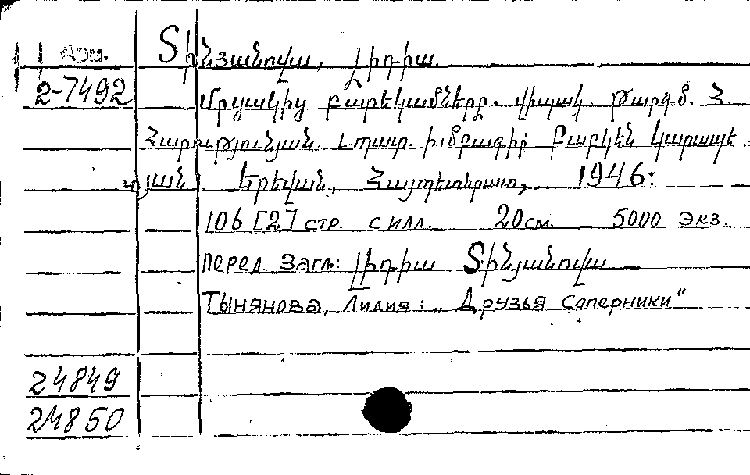 Арм. Տինյանովա, Լիդիա
2-7492 Մրցակից բարեկամները. վիպակ Թարգմ. Հ
Հարությունյան. Պատ. խմբագիր Բաբկեն Կարապե-
տյան. Երեվան, Հայպետհրատ, 1946:
106 [2] стр с илл. 20см. 5000 экз.
Перед загл: Լիդիա Տինյանովա
Тынянова, Лидия: „Друзья соперники"
24849
24850